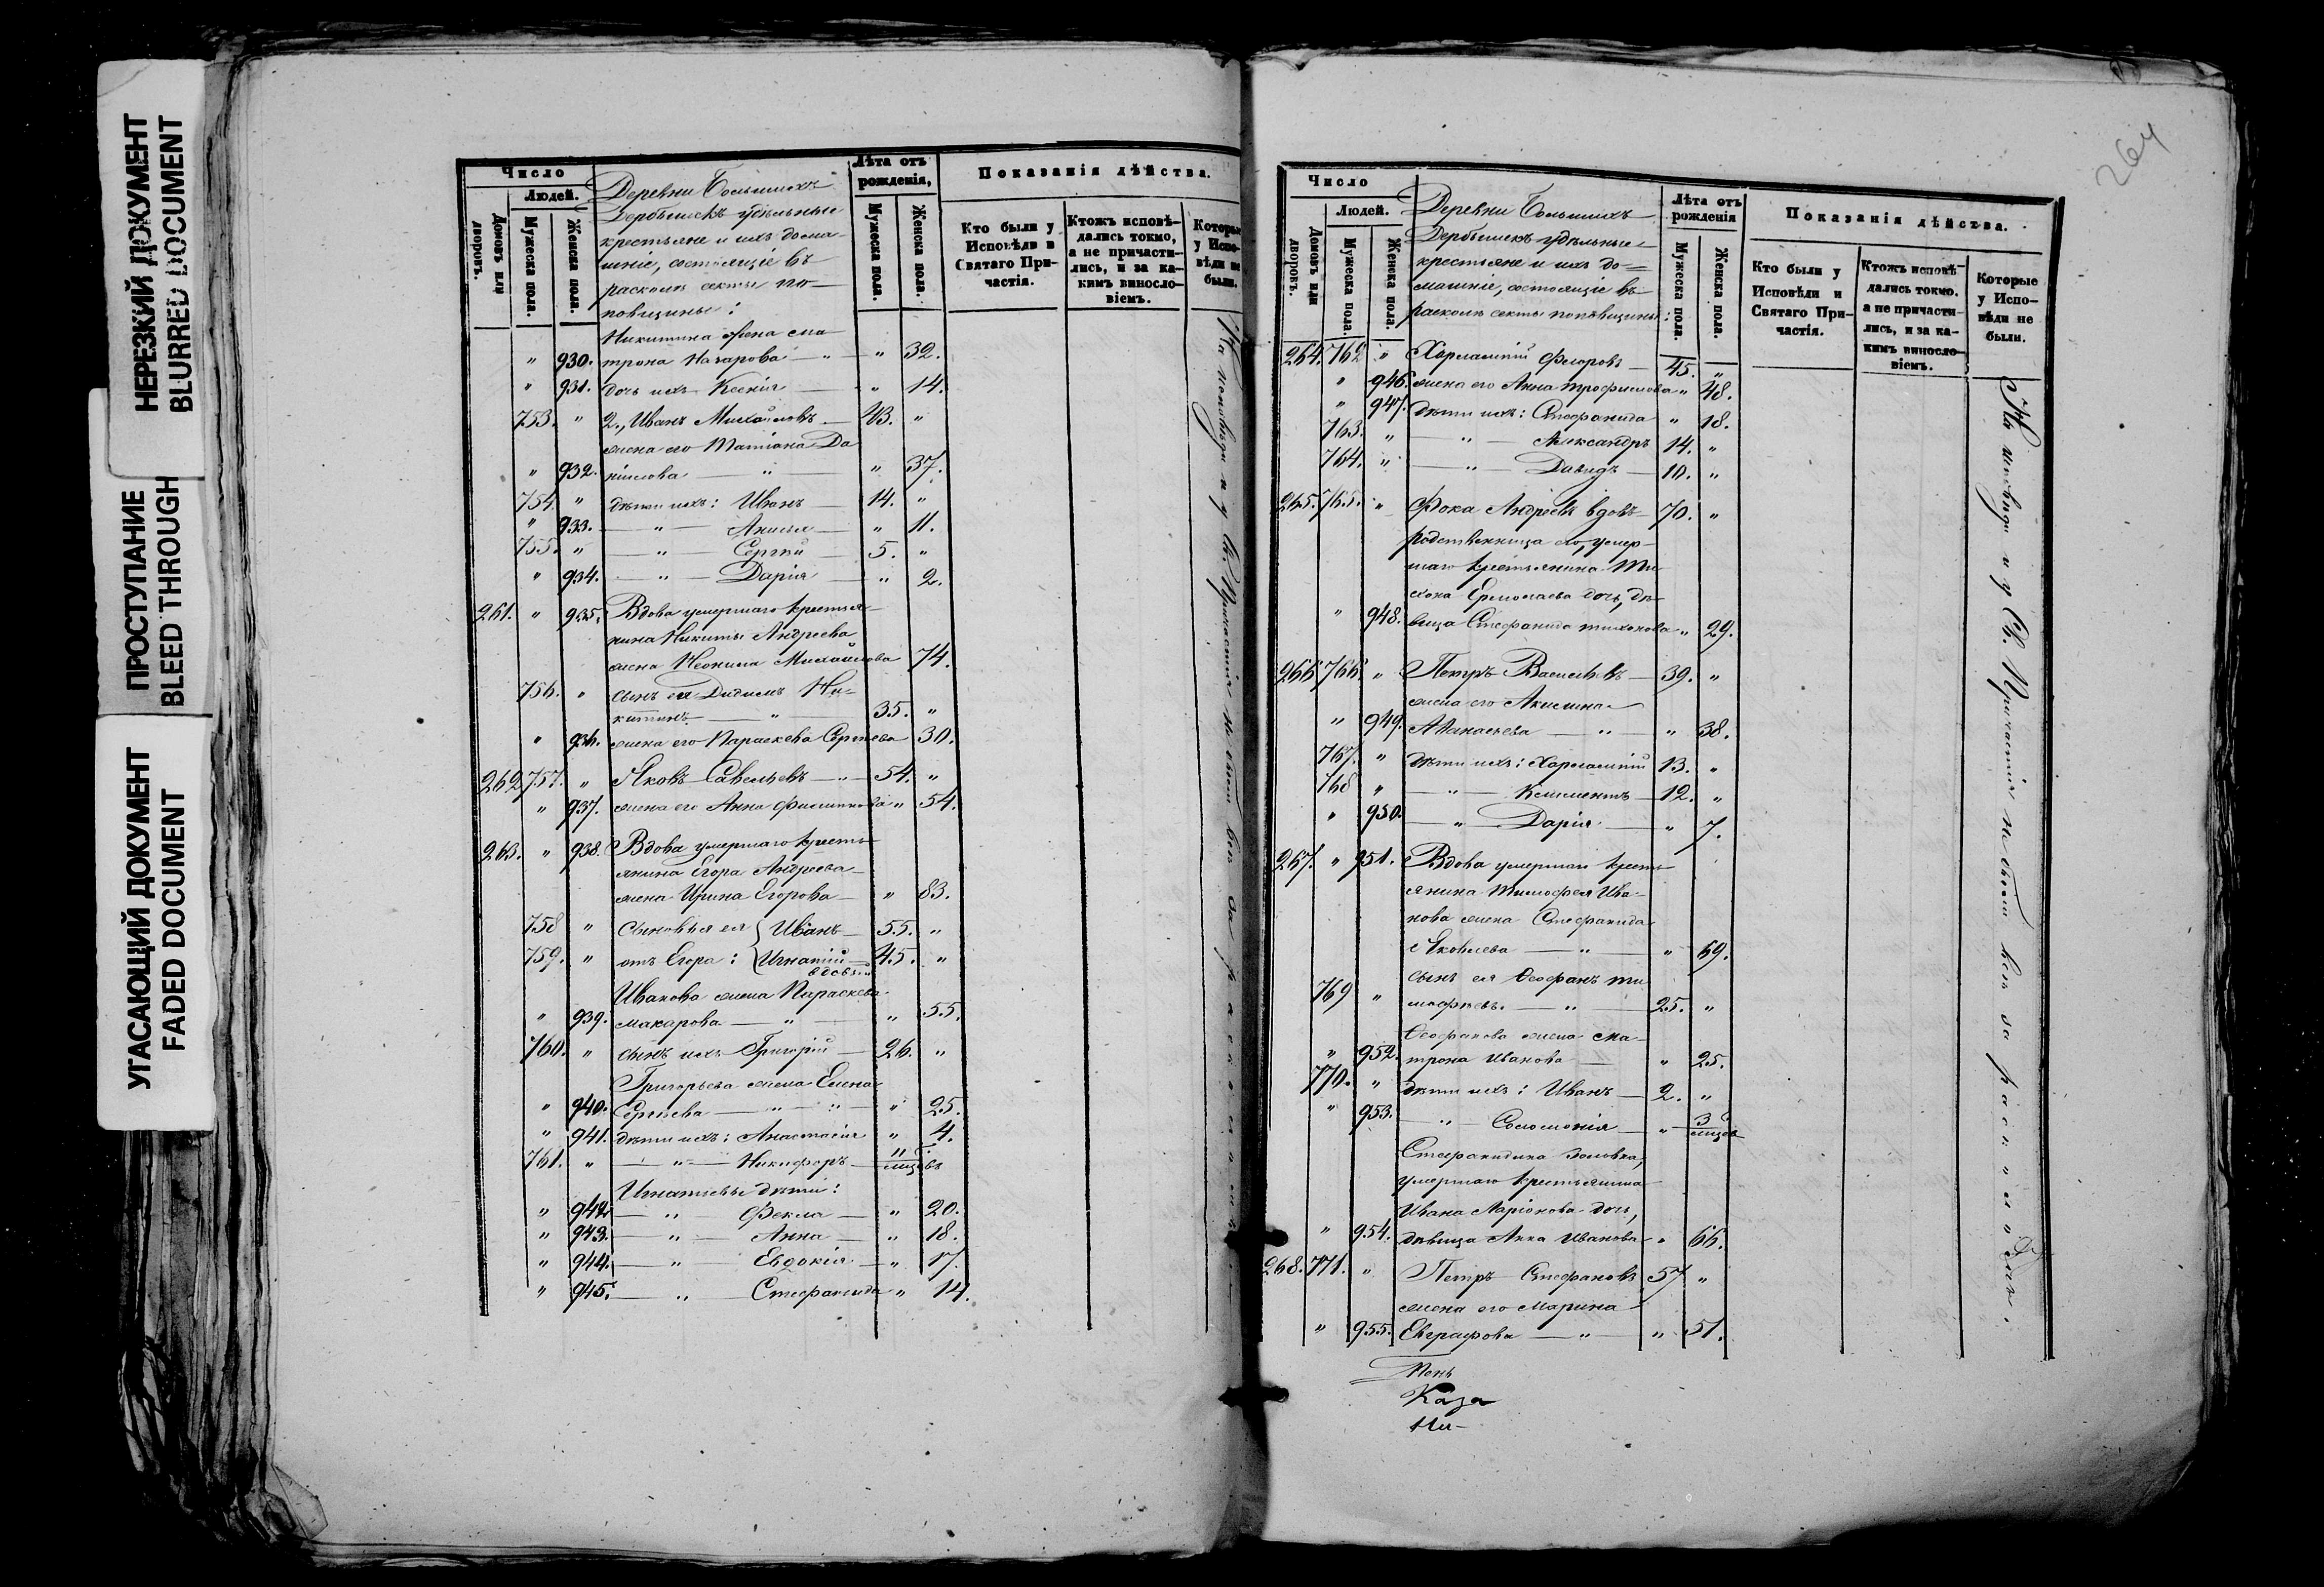 НЕРЕЗКИЙ ДОКУМЕНТ
BLURRED DOCUMENT
ПРОСТУПАНИЕ
BLEED THROUGH
УГАСАЮЩИЙ ДОКУМЕНТ
FADED DOCUMENT
Число
Людей.
Домовъ или дворовъ.
Мужеска пола.
Женска пола.
Деревни Большихъ
Дербышекъ удѣльные
крестьяне и ихъ дома-
шніе, состоящіе въ
расколѣ секты по-
повщины:
Лѣта отъ рожденія,
Мужеска пола.
Женска пола.
Показанія дѣйства.
Кто были у Исповѣди и Святаго При-частія.
Ктожъ исповѣ-дались токмо, а не причасти-лись, и за ка-кимъ виносло-віемъ.
Которые у Испо-вѣди не были.
Никитина жена Ма-
" 930. трона Назарова — " — " 32.
" 931. дочь ихъ Ксенія — " 14.
753. " 2., Иванъ Михайловъ — 43. "
жена его Татіана Да
" 932. нилова — " — " 37.
754. " дѣти ихъ: Иванъ — 14. "
" 933. — " — Анисья — " 11.
755. " — " — Сергій — 5. "
" 934. — " — Дарія — " 2.
261. " 935. Вдова умершаго крестья-
нина Никиты Андреева
жена Неонила Михайлова 74.
756. " сынъ ея Дидимъ Ни-
китинъ — " — 35. "
" 936. жена его Параскева Сергѣева 30.
262 757. " Яковъ Савельевъ — " — 54. "
" 937. жена его Анна Филиппова " 54.
263. " 938. Вдова умершаго кресть-
янина Егора Андреева
жена Ирина Егорова — " 83.
758 " Сыновья ея { Иванъ — 55. "
759. " отъ Егора: { Игнатій — 45. "
вдовъ
Иванова жена Параскева
" 939. Макарова — " — " 55.
760. " сынъ ихъ Григорій — 26. "
Григорьева жена Елена
" 940. Сергѣева — " — " — " 25.
" 941. дѣти ихъ: Анастасія " 4.
761. " — " — Никифоръ — 11 мцевъ
Игнатьевы дѣти:
" 942 — " — Фекла — " 20.
" 943. — " — Анна — " 18.
" 944. — " — Евдокія — " 17.
" 945. — " — Стефанида " 14.
264
Число
Людей.
Домовъ или дворовъ.
Мужеска пола.
Женска пола.
Деревни Большихъ
Дербышекъ удѣльные
крестьяне и ихъ до=
машніе, состоящіе въ
расколѣ секты поповщины:
Лѣта отъ рожденія
Мужеска пола.
Женска пола.
Показанія дѣйства.
Кто были у Исповѣди и Святаго При-частія.
Ктожъ исповѣ-дались токмо, а не причасти-лись, и за ка-кимъ винослo-віемъ.
Которые у Испо-вѣди не были.
264. 762 " Харлампій Флоровъ — 45. "
" 946. жена его Анна Трофимова " 48.
" 947. дѣти ихъ: Стефанида " 18.
763. " — " — Александръ 14. "
764. " — " — Давидъ — 10. "
265. 765. " Фока Андреевъ вдовъ 70. "
родственница его, умер-
шаго крестьянина Ти-
хона Ермолаева дочь, дѣ-
" 948. вица Стефанида Тихонова " 29.
266 766. " Петръ Васильевъ — 39. "
жена его Акилина
" 949. Аѳанасьева — " — " 38.
767. " дѣти ихъ: Харлампій 13. "
768 " — " — Климентъ — 12. "
" 950. — " — Дарія — " 7.
267. " 951. Вдова умершаго кресть-
янина Тимофея Ива-
нова жена Стефанида
Яковлева — " — " 69.
769 " сынъ ея Ѳеофанъ Ти
мофѣевъ. — " — 25. "
Ѳеофанова жена Ма-
" 952. трона Иванова — " 25.
770. " дѣти ихъ: Иванъ — 2. "
" 953. — " — Соломонія — " 3 мцевъ
Стефанидина золовка,
умершаго крестьянина
Ивана Ларіонова дочь,
" 954. дѣвица Анна Иванова " 66.
268. 771. " Петръ Стефановъ 57. "
жена его Марина
" 955. Евграфова — " — " 51.
На исповѣди и у Св. Причастія не были вси за расколъ